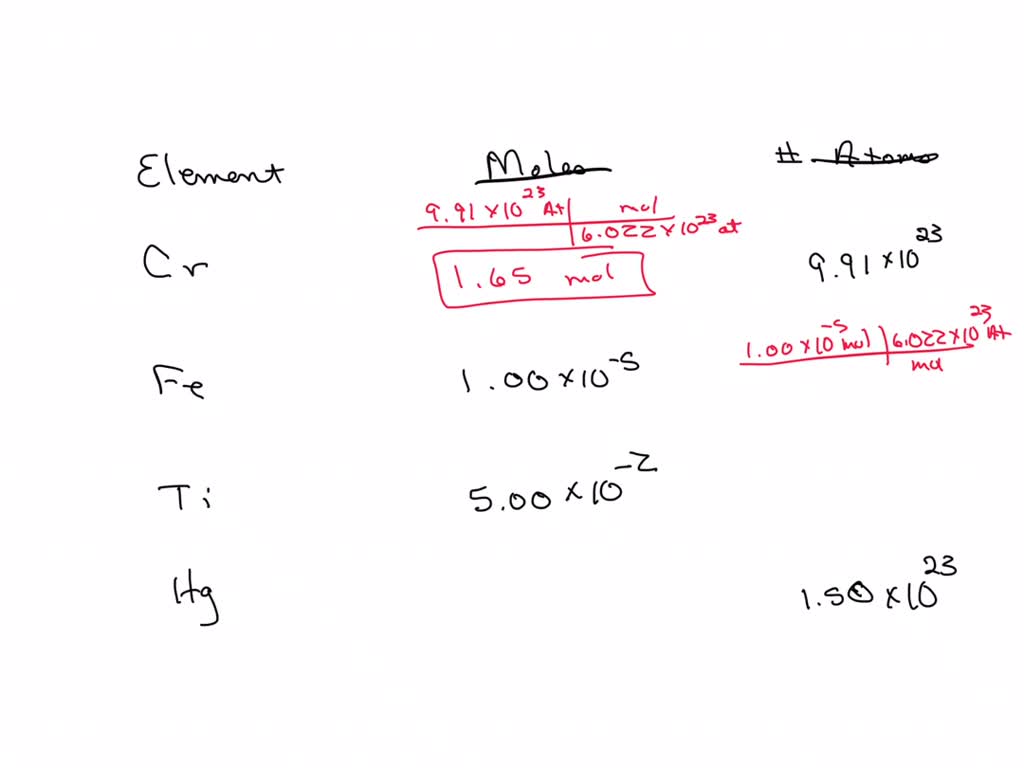 Element Moles # Atoms
9.91 × 10^23 At | mol
6.022 × 10^23 at
Cr 1.65 mol 9.91 × 10^23
1.00 × 10^-5 mol | 6.022 × 10^23 At
mol
Fe 1.00 × 10^-5
Ti 5.00 × 10^-2
Hg 1.50 × 10^23